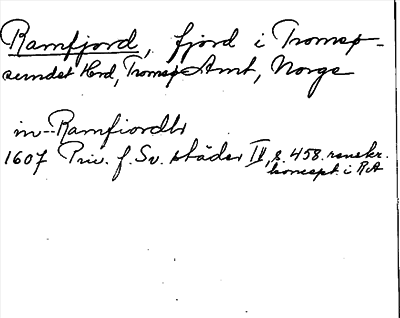 Ramfjord, fjord i Tromsø-
sundet Hrd, Tromsø Amt, Norge
in--Ramfiordh
1607 Priv. f. Sv. städer II, s. 458. renskr.
koncept i RA